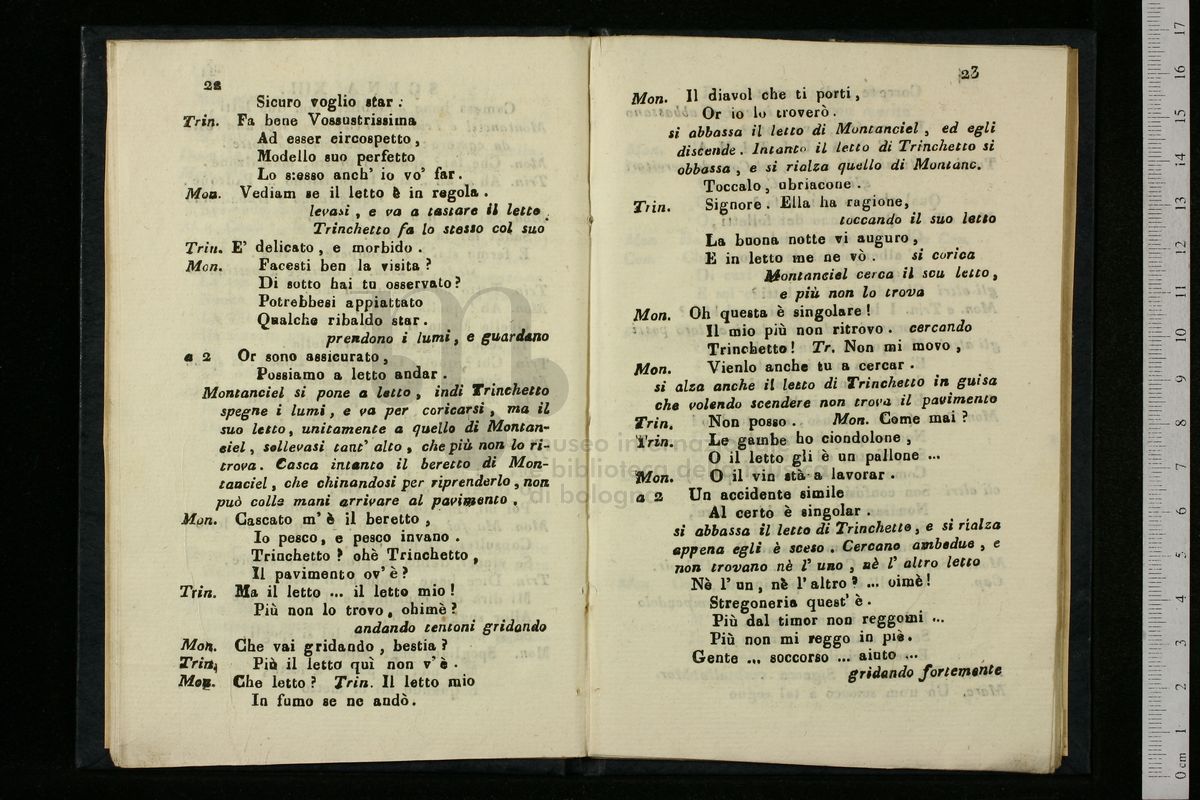 22
Sicuro voglio star .
Trin. Fa bene Vossustrissima
Ad esser circospetto ,
Modello suo perfetto
Lo stesso anch' io vo' far .
Mon. Vediam se il letto è in regola .
levasi , e va a tastare il letto .
Trinchetto fa lo stesso col suo
Trin. E' delicato , e morbido .
Mon. Facesti ben la visita ?
Di sotto hai tu osservato ?
Potrebbesi appiattato
Qualche ribaldo star .
prendono i lumi , e guardano
a 2 Or sono assicurato ,
Possiamo a letto andar .
Montanciel si pone a letto , indi Trinchetto
spegne i lumi , e va per coricarsi , ma il
suo letto , unitamente a quello di Montan-
ciel , sollevasi tant' alto , che più non lo ri-
trova . Casca intanto il beretto di Mon-
tanciel , che chinandosi per riprenderlo , non
può colle mani arrivare al pavimento .
Mon. Cascato m' è il beretto ,
Io pesco , e pesco invano .
Trinchetto ? ohè Trinchetto ,
Il pavimento ov' è ?
Trin. Ma il letto ... il letto mio !
Più non lo trovo , ohimè ?
andando tentoni gridando
Mon. Che vai gridando , bestia ?
Trin. Più il letto quì non v' è .
Mon. Che letto ? Trin. Il letto mio
In fumo se ne andò .
23
Mon. Il diavol che ti porti ,
Or io lo troverò .
si abbassa il letto di Montanciel , ed egli
discende . Intanto il letto di Trinchetto si
obbassa , e si rialza quello di Montanc.
Toccalo , ubriacone .
Trin. Signore . Ella ha ragione ,
toccando il suo letto
La buona notte vi auguro ,
E in letto me ne vò . si corica
Montanciel cerca il scu letto ,
e più non lo trova
Mon. Oh questa è singolare !
Il mio più non ritrovo . cercando
Trinchetto ! Tr. Non mi movo ,
Mon. Vienlo anche tu a cercar .
si alza anche il letto di Trinchetto in guisa
che volendo scendere non trova il pavimento
Trin. Non posso . Mon. Come mai ?
Trin. Le gambe ho ciondolone ,
O il letto gli è un pallone ...
Mon. O il vin stà a lavorar .
a 2 Un accidente simile
Al certo è singolar .
si abbassa il letto di Trinchetto , e si rialza
appena egli è sceso . Cercano ambedue , e
non trovano nè l' uno , nè l' altro letto
Nè l' un , nè l' altro ? ... oimè !
Stregoneria quest' è .
Più dal timor non reggomi ...
Più non mi reggo in piè .
Gente ... soccorso ... aiuto ...
gridando fortemente
museo internazionale
e biblioteca della musica
di bologna
0 cm 1 2 3 4 5 6 7 8 9 10 11 12 13 14 15 16 17